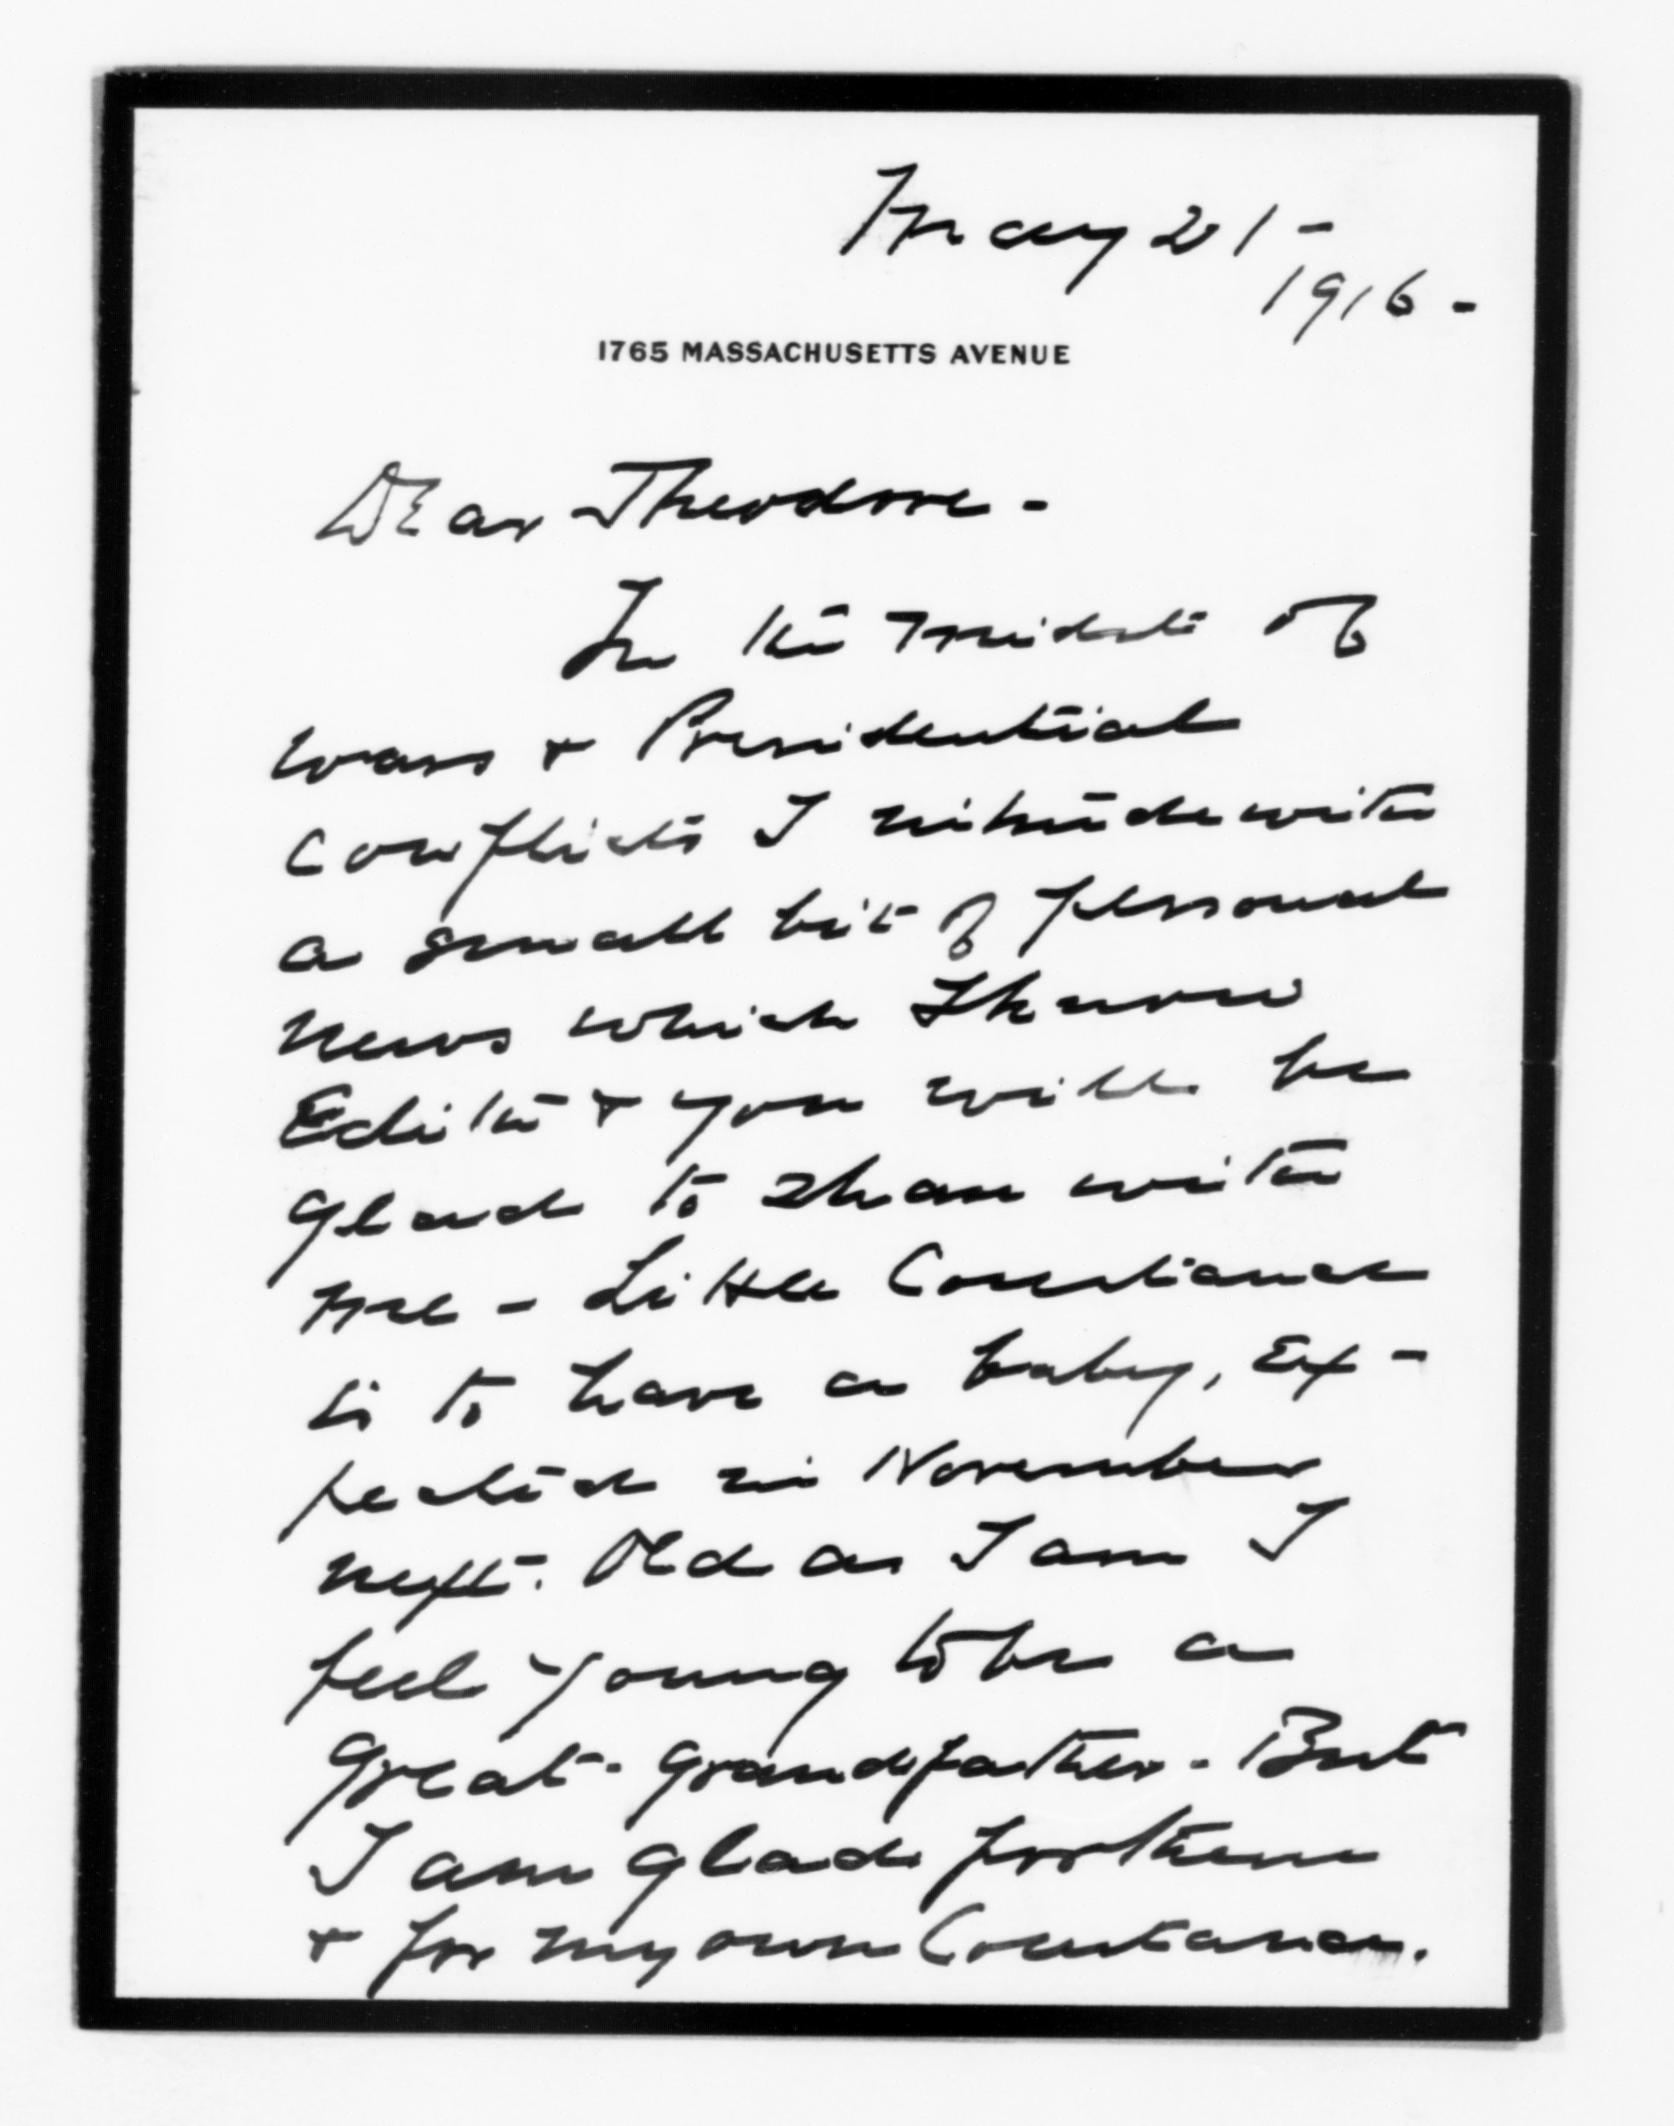 May 21-
1916-
1765 MASSACHUSETTS AVENUE
Dear Theodore-
In the midst of
wars & Presidential
conflicts I intrude with
a small bit of personal
news which I know
Edith & you will be
glad to share with
me - Little Constance
is to have a baby, ex-
pected in November
next. Old as I am I
feel young to be a
great-grandfather. But
I am glad for them
& for my own Constance.